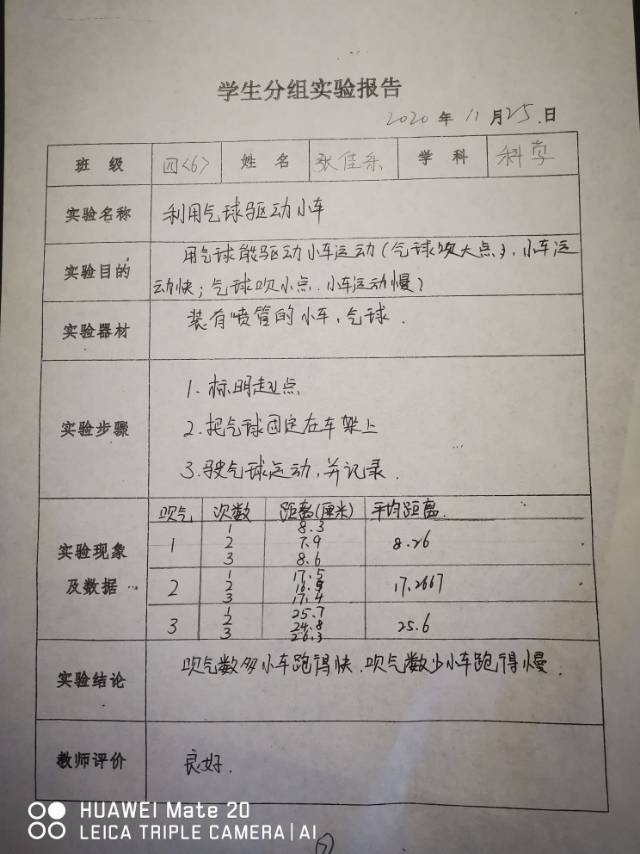 学生分组实验报告
2020 年 11 月 25. 日
班 级 四<6> 姓 名 张佳乐 学 科 科学
实验名称 利用气球驱动小车
实验目的 用气球能驱动小车运动(气球吹大点),小车运
动快;气球吹小点.小车运动慢)
实验器材 装有喷管的小车,气球.
实验步骤
1.标明起点
2.把气球固定在车架上
3.驶气球运动,并记录.
实验现象
及数据
吹气 次数 距离(厘米) 平均距离.
1 8.3
1 2 7.9 8.26
3 8.6
1 17.5
2 2 16.9 17.2667
3 17.4
1 25.7
3 2 24.8 25.6
3 26.3
实验结论 吹气数多小车跑得快.吹气数少小车跑得慢.
教师评价 良好.
HUAWEI Mate 20
LEICA TRIPLE CAMERA | AI